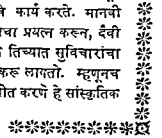 कार्य करते. मानवी
प्रयत्न करून, दैवी
तिच्यात सुविचारांचा
लागतो. म्हणूनच
करणे हे सांस्कृतिक